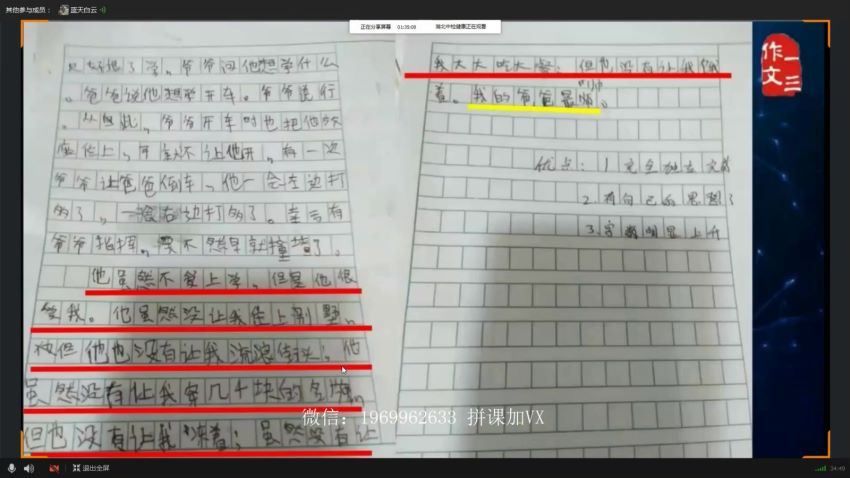 其他参与成员：
蓝天白云
正在分享屏幕 01:35:00
湖北中检健康正在观看
只好退了学。爷爷问他想学什么
。爸爸说他想学开车。爷爷说行
。从此，爷爷开车时也把他放
座位上，可就不让他开，有一次
爷爷让爸爸倒车，他一会左边打
多了，一会右边打多了。幸亏有
爷爷指挥，要不然早就撞墙了。
他虽然不爱上学，但是他很
爱我。他虽然没让我住上别墅，
但他也没有让我流浪街头；他
虽然没有让我穿几千块的名牌，
但也没有让我冻着；虽然没有让
我天天吃大餐；但也没有让我饿
着。我的爸爸最帅。
优点：1.完全独立完成
2.有自己的思想了
3.字数明显上升
作文
一二三
微信：1969962633 拼课加VX
退出全屏
34:49